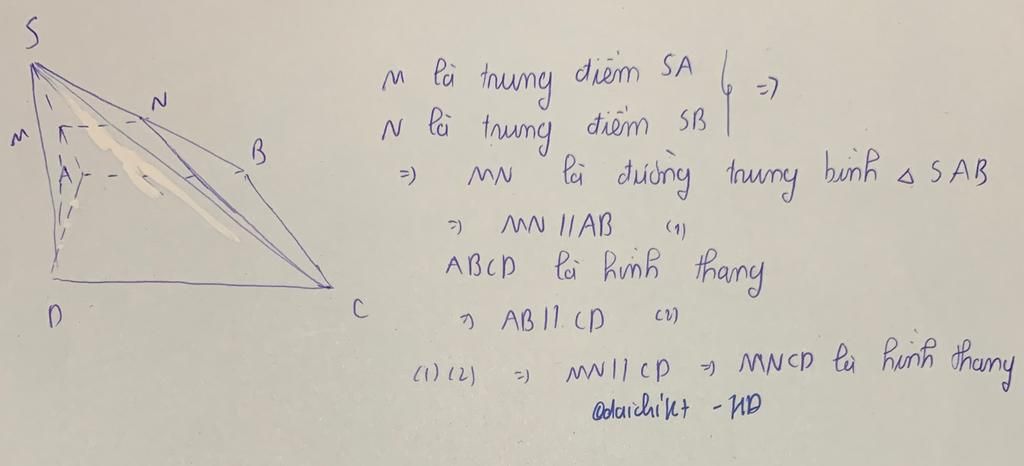 S
M
N
A
B
D
C
M là trung điểm SA
N là trung điểm SB
=>
=> MN là đường trung bình △ SAB
=> MN // AB (1)
ABCD là hình thang
=> AB // CD (2)
(1) (2) => MN // CD => MNCD là hình thang
@daichikt - HD